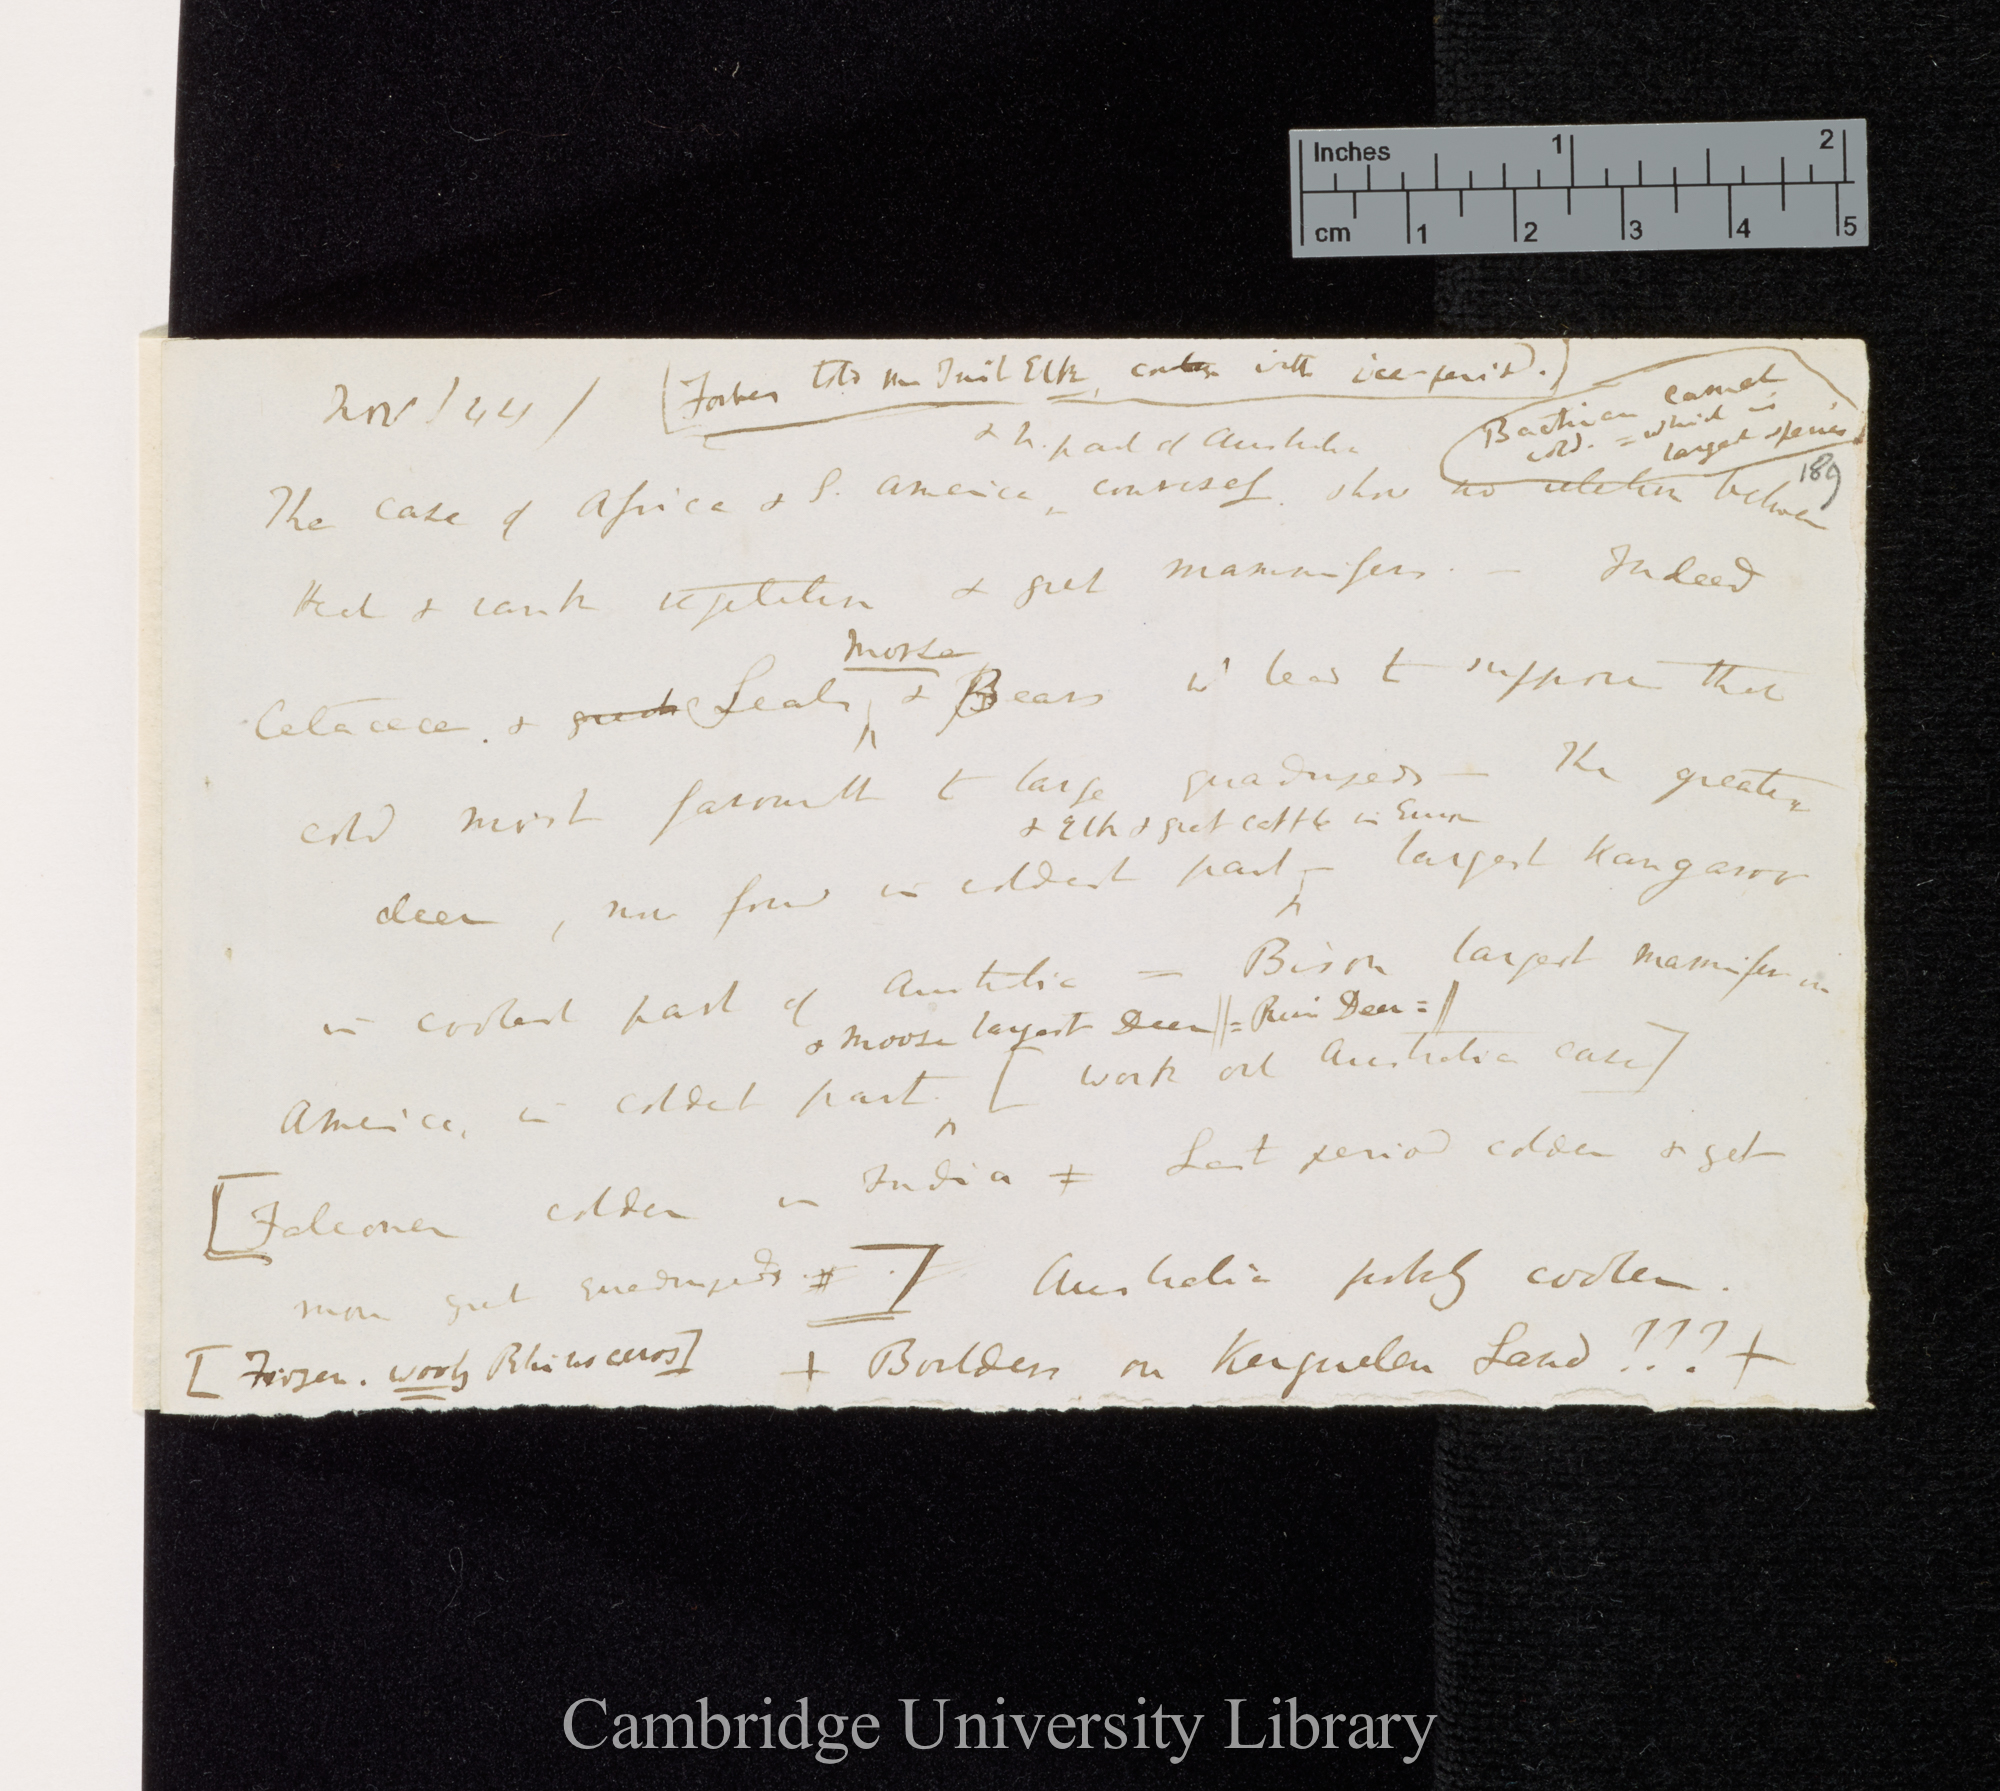 Inches 1 2
cm 1 2 3 4 5
Nov/44/
[Forbes told me Irish Elk, with ice-period.]
Bactrian camel
cold. = which is
largest species
189
& N. part of Australia
The case of Africa & S. America, conversely show no relation between
Heat & rank vegetation & great mammifers. — Indeed
Morse
Cetaceae. & great Seals, & Bears wd lead to suppose that
cold most favourable to large quadrupeds — The greatest
& Elk & great cattle in Europe
deer, now found in coldest part — largest Kangaroo
in coolest part of Australia = Bison largest mammifer in
& Moose largest Deer || = Rein Deer = ||
America, in coldest part. [Work out Australia case]
[Falconer colder in India ‡ Last period colder & yet
more great quadrupeds ‡ .] Australia probably cooler.
[Frozen. wooly Rhinoceros] + Boulders on Kerguelen Land ??? +
Cambridge University Library